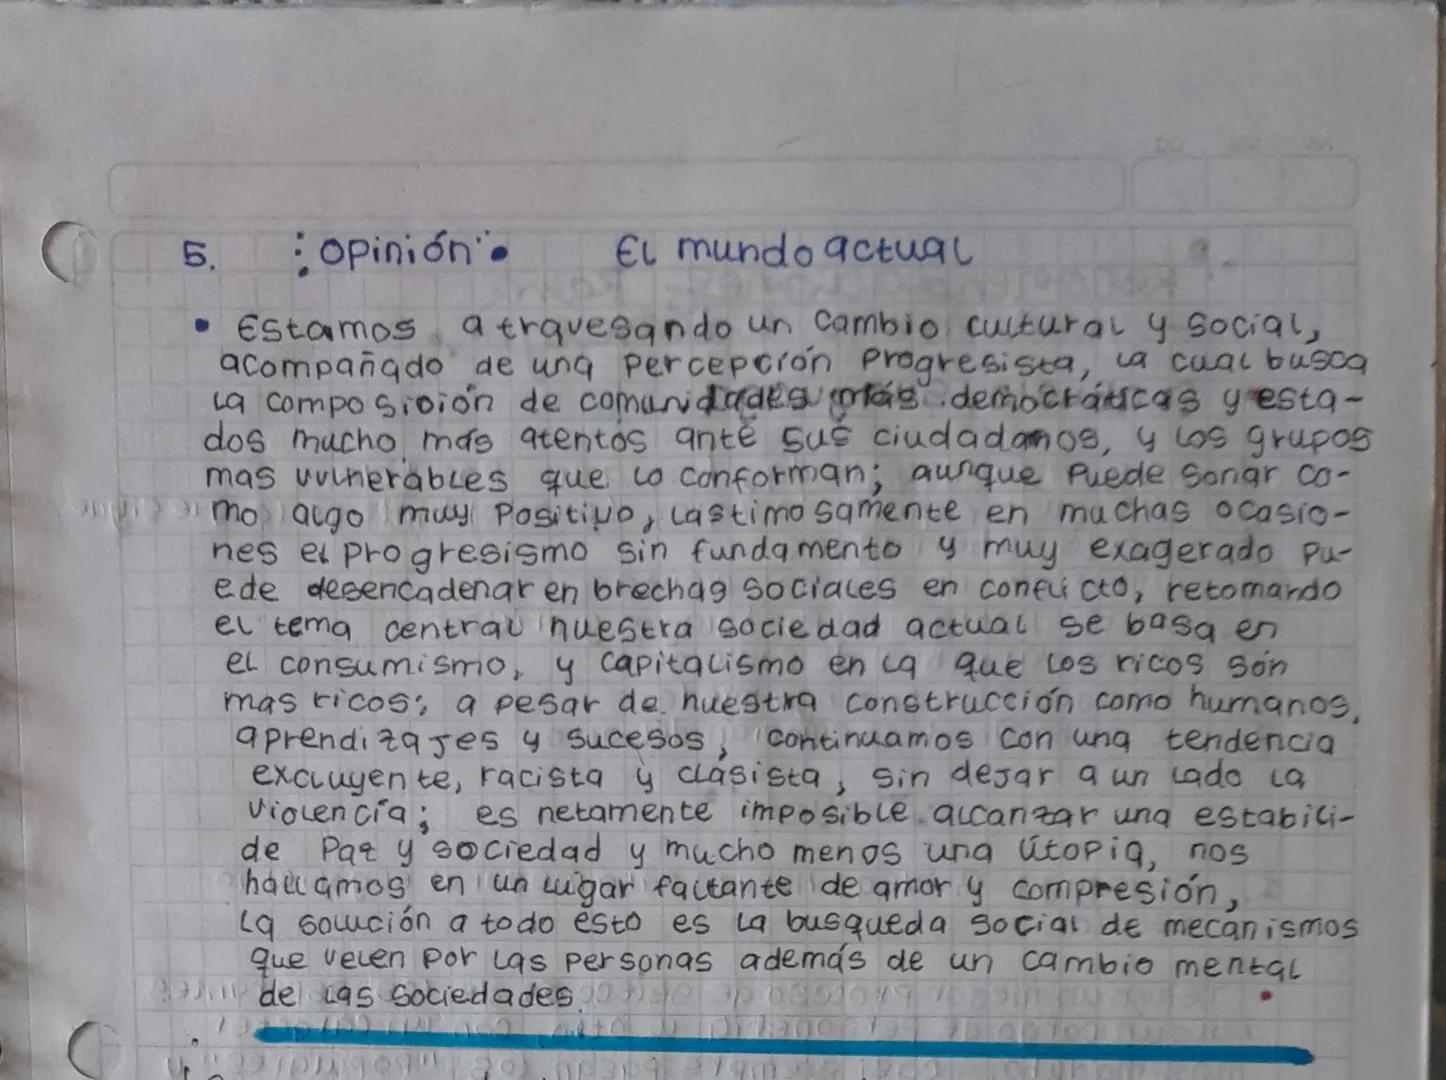 5. : Opinión : El mundo actual
• Estamos atravesando un cambio cultural y social,
acompañado de una percepción progresista, la cual busca
la composición de comunidades más democráticas y esta-
dos mucho más atentos ante sus ciudadanos, y los grupos
mas vulnerables que lo conforman; aunque puede sonar co-
mo algo muy positivo, lastimosamente en muchas ocasio-
nes el progresismo sin fundamento y muy exagerado pu-
ede desencadenar en brechas sociales en conflicto, retomando
el tema central nuestra sociedad actual se basa en
el consumismo, y capitalismo en la que los ricos son
mas ricos; a pesar de nuestra construcción como humanos,
aprendizajes y sucesos, continuamos con una tendencia
excluyente, racista y clasista, sin dejar a un lado la
violencia; es netamente imposible alcanzar una estabili-
de paz y sociedad y mucho menos una útopia, nos
hallamos en un lugar faltante de amor y compresión,
la solución a todo esto es la busqueda social de mecanismos
que velen por las personas además de un cambio mental
de las sociedades.